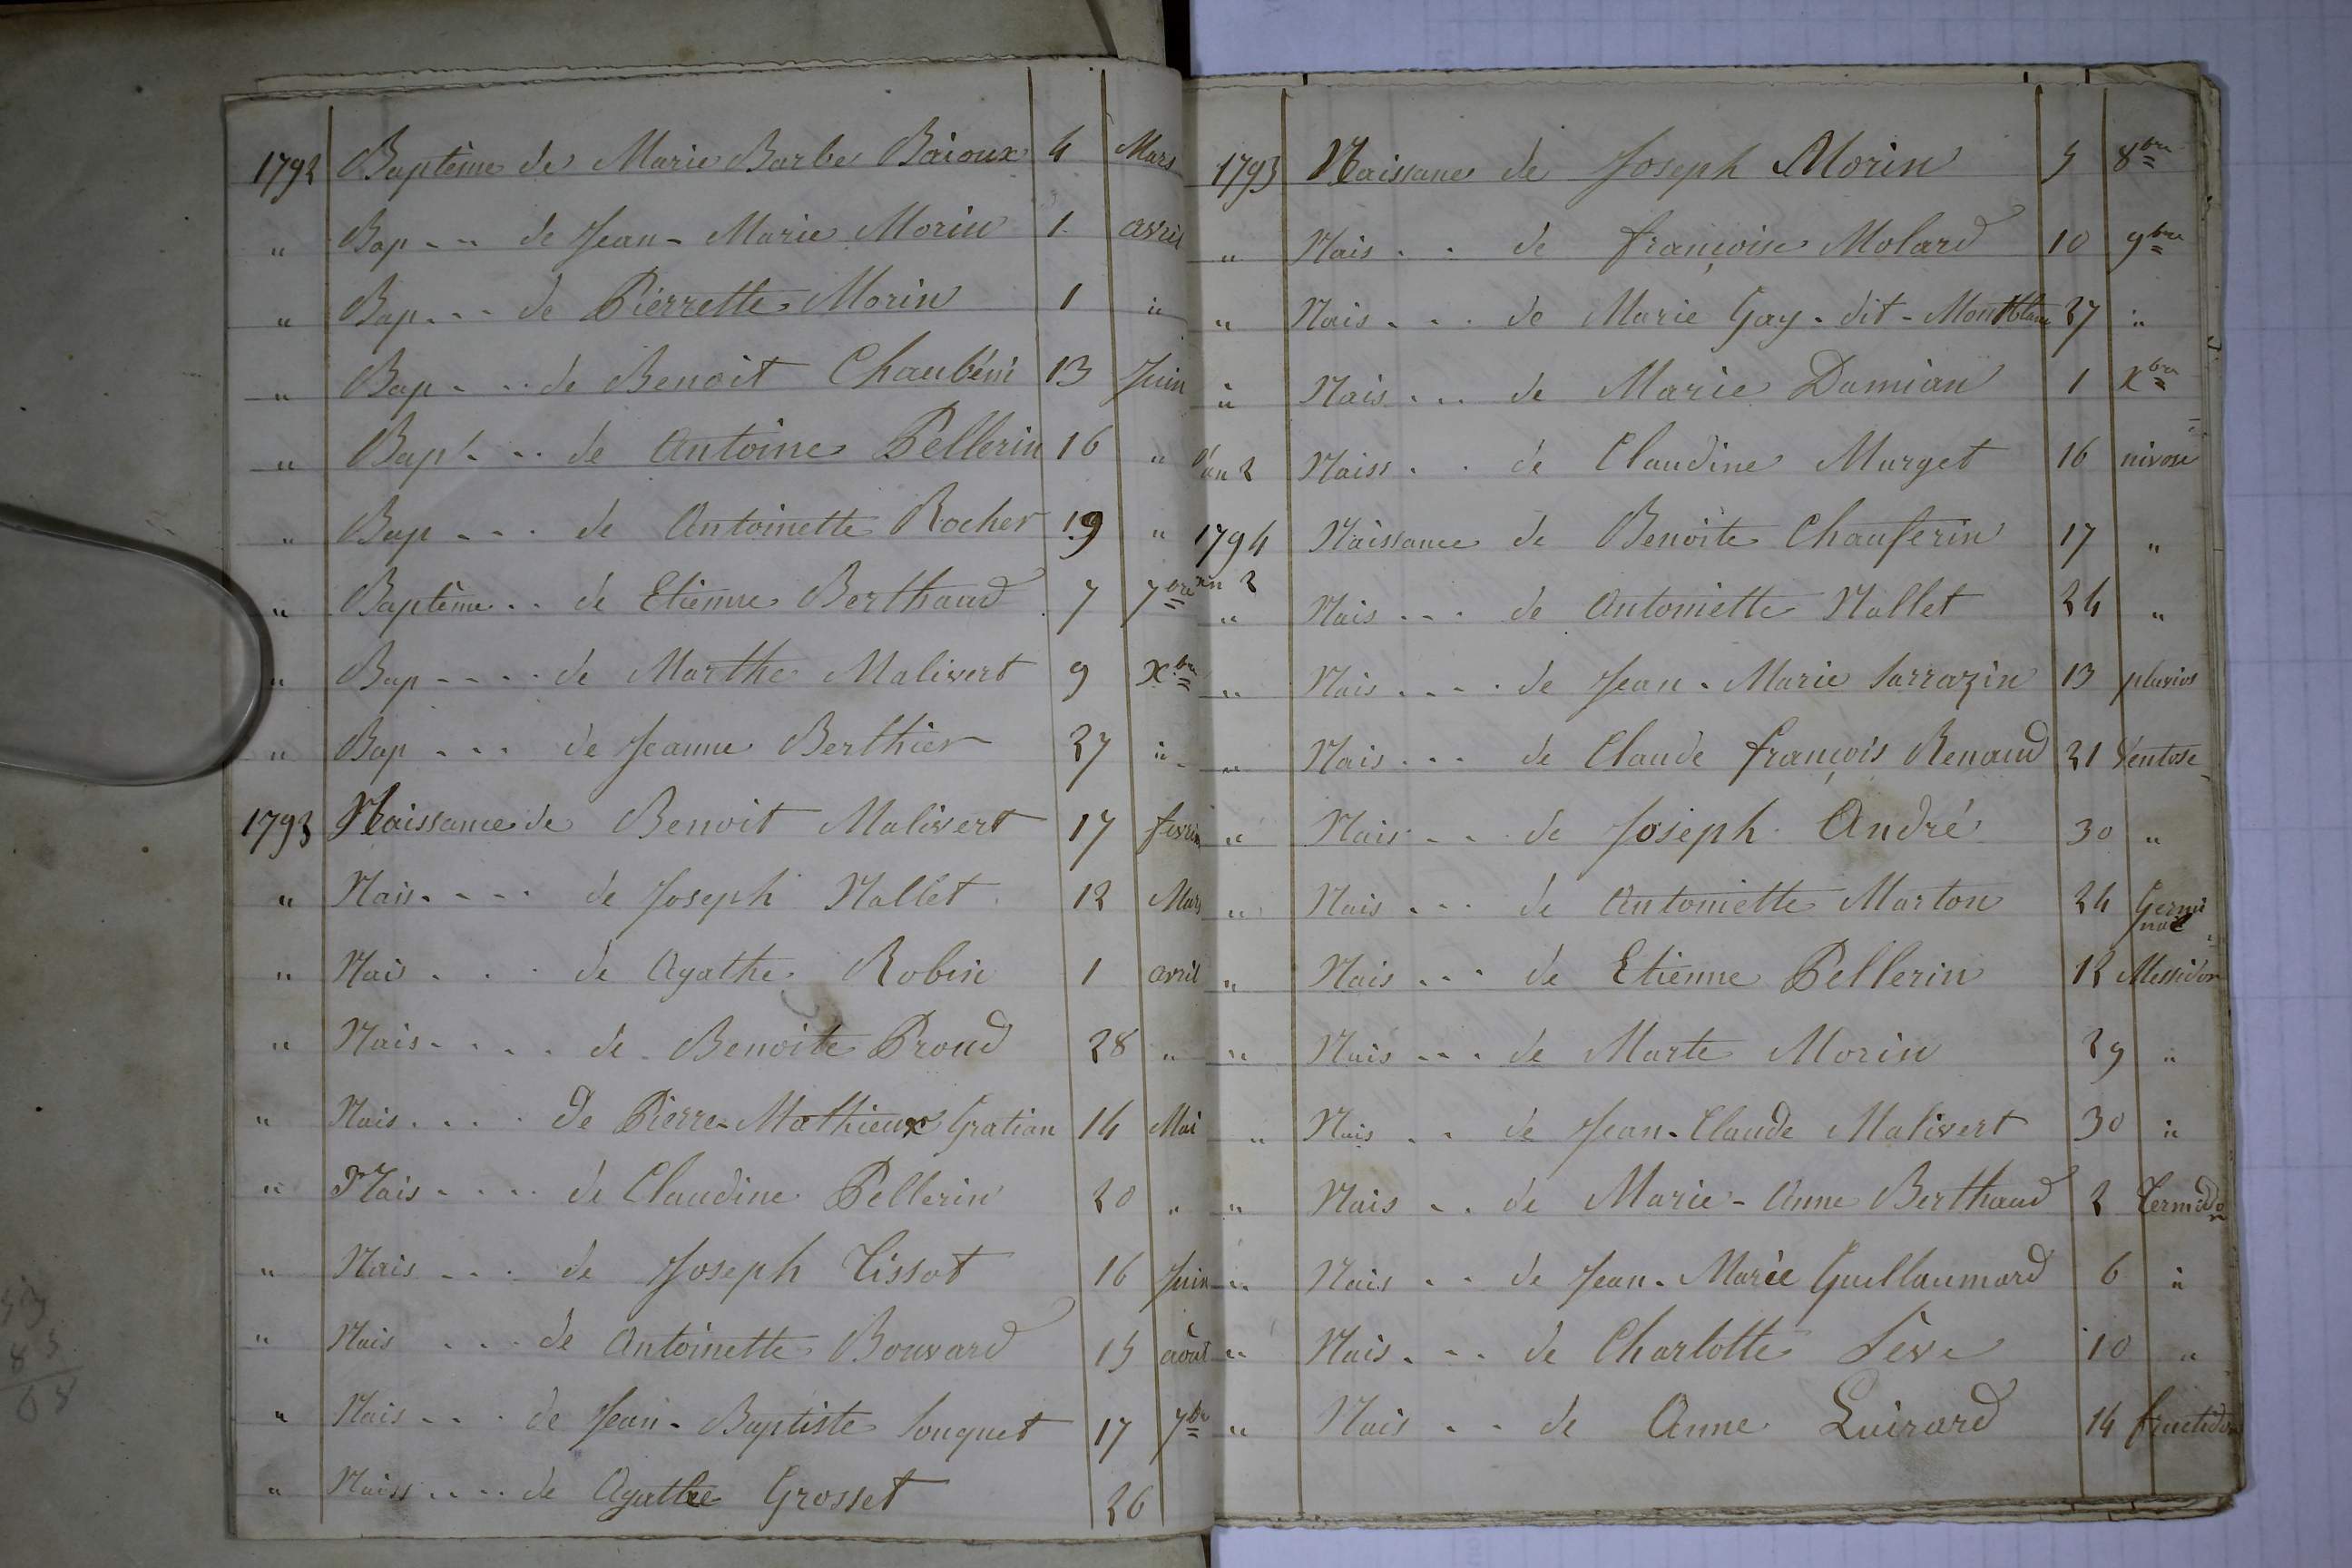 1792 Baptême de Marie Barbe Baioux 4 Mars
" Bap - - - de Jean - Marie Morin 1 avril
" Bap - - - de Pierrette Morin 1 "
" Bap - - - de Benoit Chaubéni 13 Juin
" Bap - - - de Antoine Pellerin 16 "
" Bap - - - de Antoinette Rocher 19 "
" Baptême - - de Etienne Berthaud 7 7bre
" Bap - - - - de Marthe Malivert 9 Xbre
" Bap - - - de Jeanne Berthier 27 "
1793 Naissance de Benoit Malivert 17 fevrier
" Nais - - - - de Joseph Nallet 12 Mars
" Nais - - - de Agathe Robin 1 avril
" Nais - - - - de Benoite Proud 28 "
" Nais - - - - de Pierre - Mathieux Gratian 14 Mai
" Nais - - - - de Claudine Pellerin 20 "
" Nais - - - de Joseph Tissot 16 Juin
" Nais - - - de Antoinette Bouvard 15 août
" Nais - - - de Jean - Baptiste Souquet 17 7bre
" Naiss - - - - de Agathe Grosset 26
1793 Naissance de Joseph Morin 5 8bre
" Nais - - de françoise Molard 10 9bre
" Nais - - - de Marie Gay - dit - Montblanc 27 "
" Nais - - - de Marie Damian 1 Xbre
l'an 2 Naiss - - de Claudine Murget 16 nivose
1794 Naissance de Benoite Chauferin 17 "
an 2
" Nais - - - de Antoniette Nallet 24 "
" Nais - - - - de Jean - Marie Sarrazin 13 pluvios
" Nais - - - de Claude françois Renaud 21 Ventose
" Nais - - - de Joseph André 30 "
" Nais - - - de Antoniette Marton 24 Germinal
" Nais - - - de Etienne Pellerin 12 Messidor
" Nais - - - de Marte Morin 29 "
" Nais - - de Jean - Claude Malivert 30 "
" Nais - - de Marie - Anne Berthaud 2 Termidor
" Nais - - de Jean - Marie Guillaumard 6 "
" Nais - - - de Charlotte Sève 10 "
" Nais - - de Anne Luirard 14 fructidor